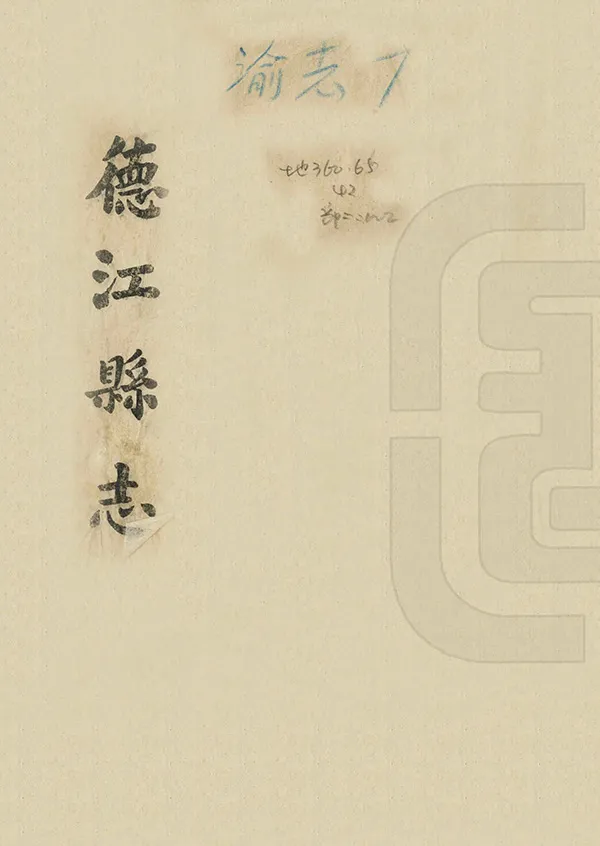 渝志7
地360.65
42
德江縣志